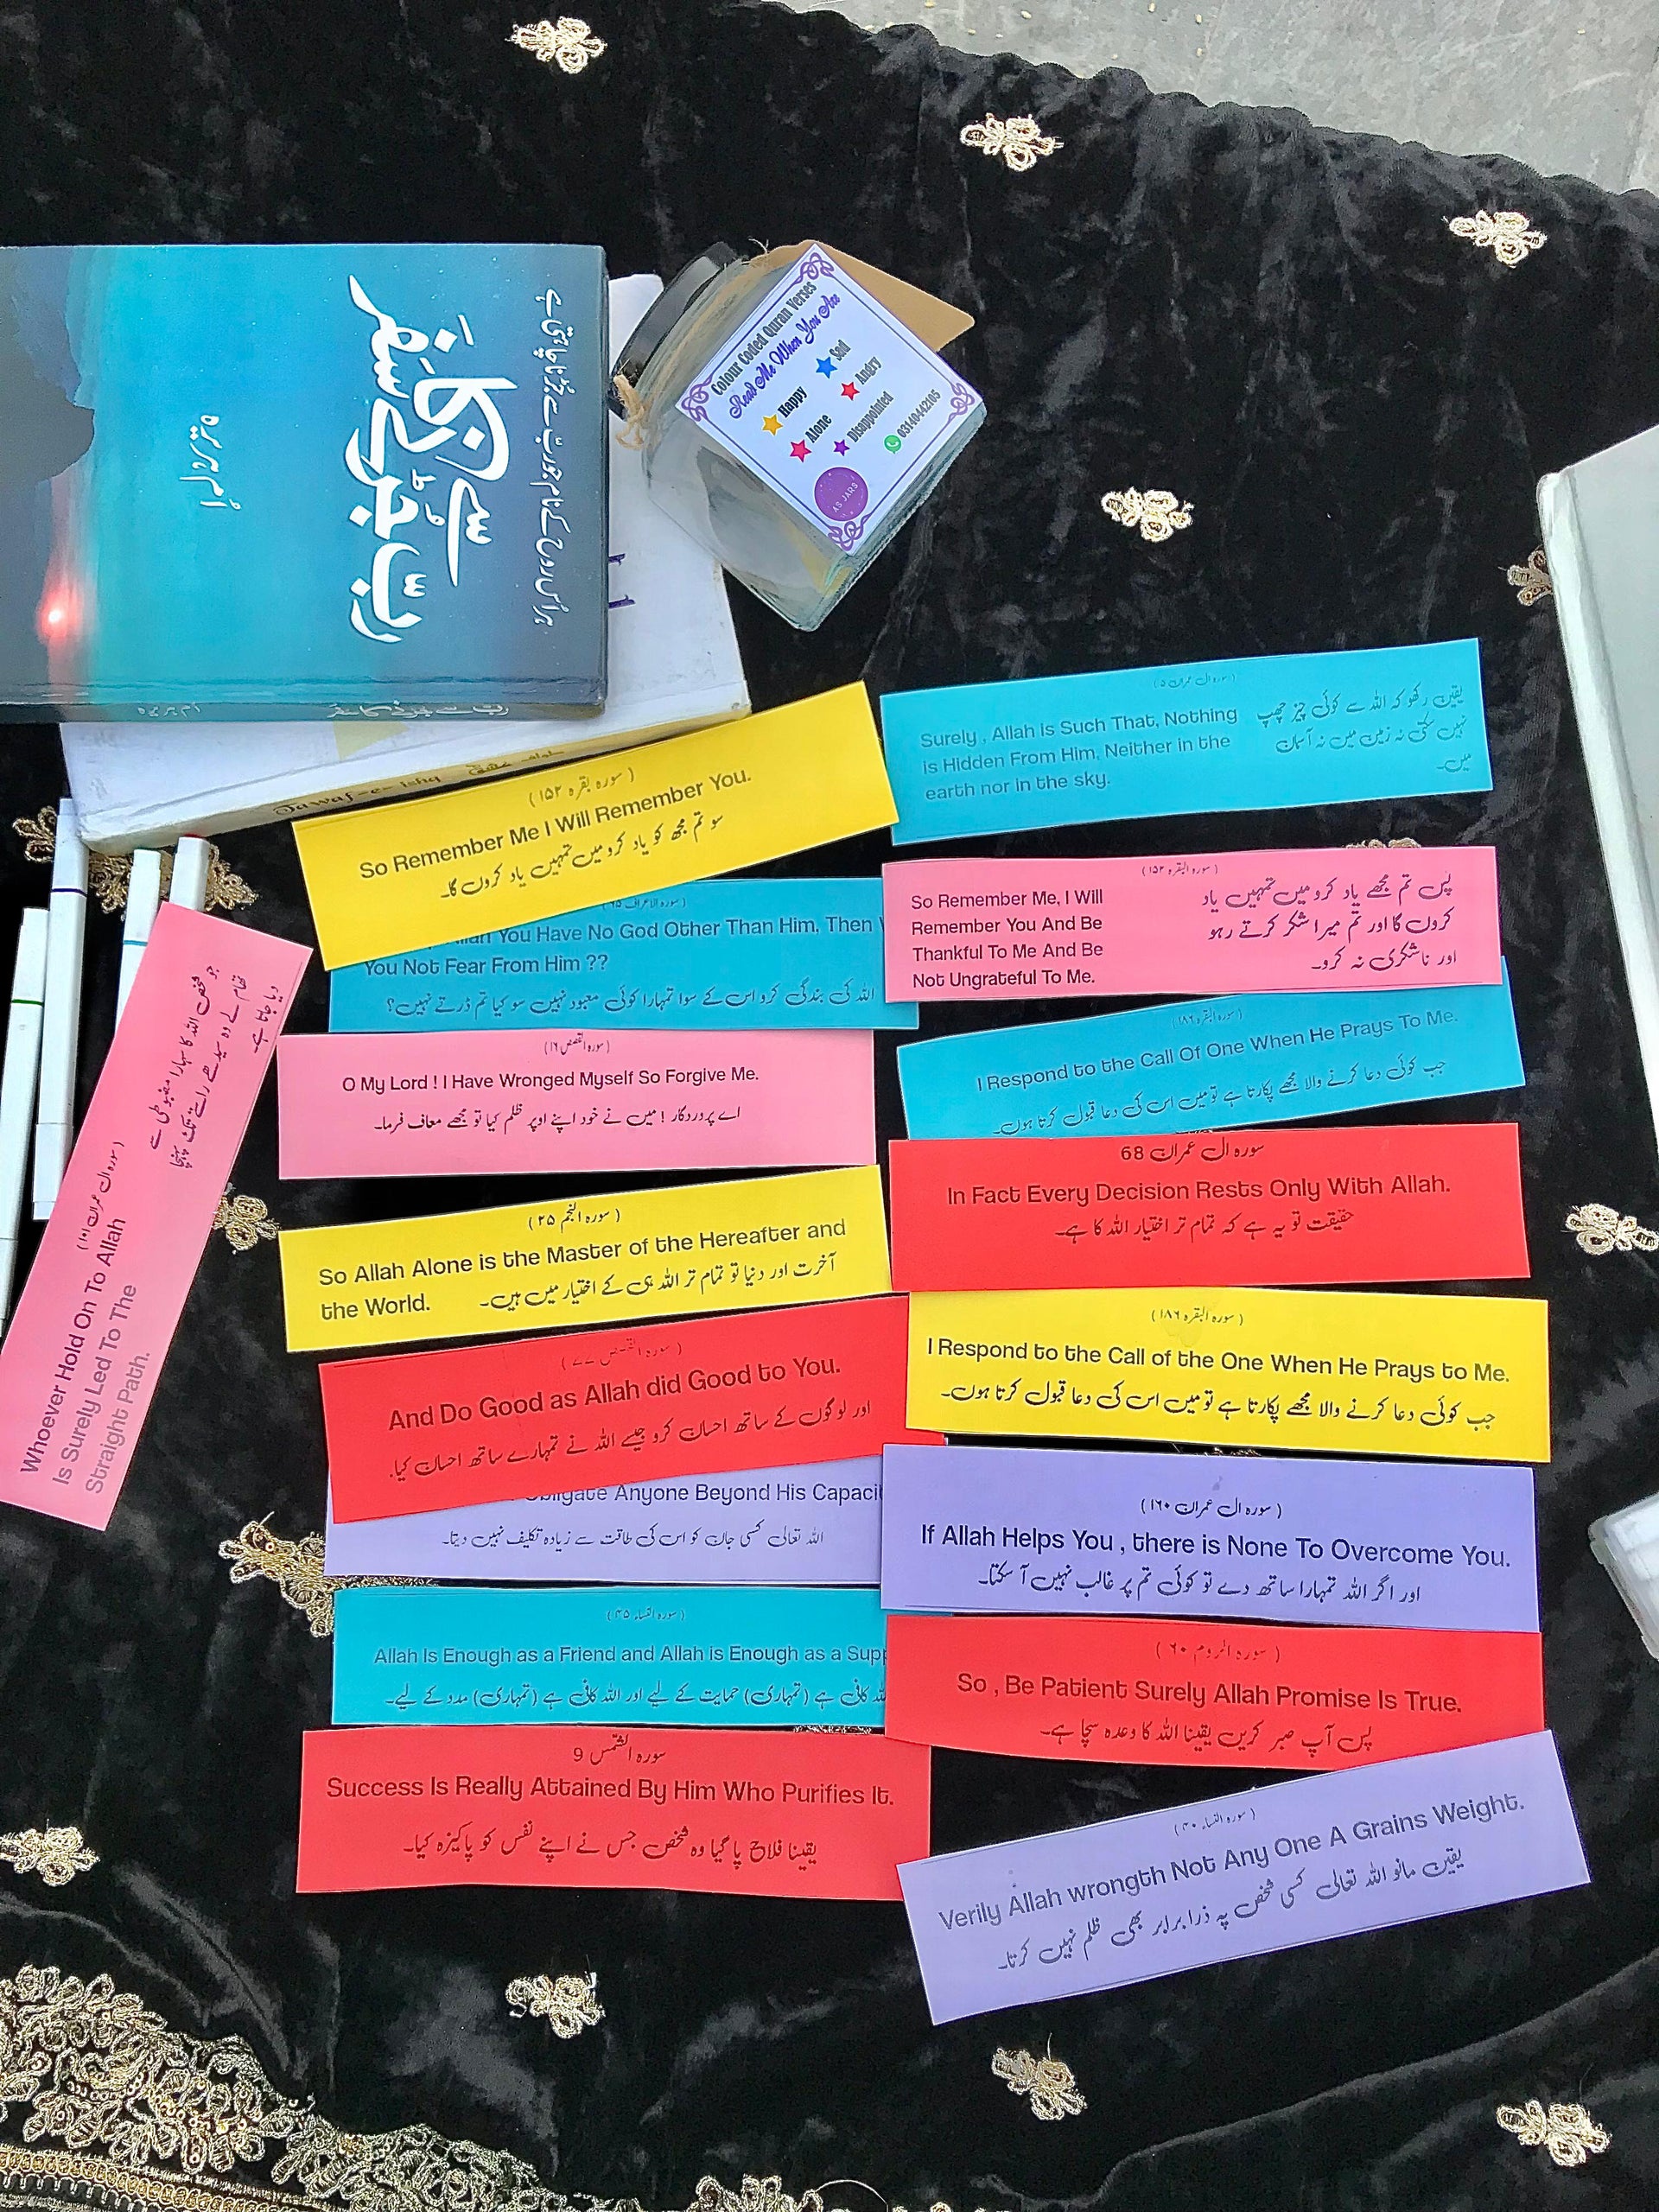 ہر اُس روح کے نام جو ربّ سے جُڑنا چاہتی ہے
ربّ سے جُڑنے کا سفر
اُمِ ہریرہ
رب سے جڑنے کا سفر
Tawaf-e-ishq
Colour Coded Quran Verses
Read Me When You Are
Happy
Sad
Alone
Angry
Disappointed
03140442105
AS JARS
(سورہ بقرہ ۱۵۲)
So Remember Me I Will Remember You.
سو تم مجھ کو یاد کرو میں تمہیں یاد کروں گا۔
(سورہ ال عمران ۵)
Surely , Allah is Such That, Nothing
is Hidden From Him, Neither in the
earth nor in the sky.
یقین رکھو کہ اللہ سے کوئی چیز چھپ
نہیں سکتی نہ زمین میں نہ آسمان
میں۔
سورہ الاعراف ۶۵)
Allah You Have No God Other Than Him, Then
You Not Fear From Him ??
اللہ کی بندگی کرو اس کے سوا تمہارا کوئی معبود نہیں سو کیا تم ڈرتے نہیں؟
(سورہ البقرہ ۱۵۲)
So Remember Me, I Will
Remember You And Be
Thankful To Me And Be
Not Ungrateful To Me.
پس تم مجھے یاد کرو میں تمہیں یاد
کروں گا اور تم میرا شکر کرتے رہو
اور ناشکری نہ کرو۔
(سورہ القصص ۱۶)
O My Lord ! I Have Wronged Myself So Forgive Me.
اے پروردگار ! میں نے خود اپنے اوپر ظلم کیا تو مجھے معاف فرما۔
(سورہ البقرہ ۱۸۶)
I Respond to the Call Of One When He Prays To Me.
جب کوئی دعا کرنے والا مجھے پکارتا ہے تو میں اس کی دعا قبول کرتا ہوں۔
(سورہ ال عمران ۱۰۱)
Whoever Hold On To Allah
Is Surely Led To The
Straight Path.
جو شخص اللہ کا سہارا مضبوطی سے
تھام لے وہ سیدھے راستے تک پہنچا
دیا جاتا ہے
سورہ ال عمران 68
In Fact Every Decision Rests Only With Allah.
حقیقت تو یہ ہے کہ تمام تر اختیار اللہ کا ہے۔
(سورہ النجم ۲۵)
So Allah Alone is the Master of the Hereafter and
the World.
آخرت اور دنیا تو تمام تر اللہ ہی کے اختیار میں ہیں۔
(سورہ البقرہ ۱۸۶)
I Respond to the Call of the One When He Prays to Me.
جب کوئی دعا کرنے والا مجھے پکارتا ہے تو میں اس کی دعا قبول کرتا ہوں۔
(سورہ القصص ۷۷)
And Do Good as Allah did Good to You.
اور لوگوں کے ساتھ احسان کرو جیسے اللہ نے تمہارے ساتھ احسان کیا.
Obligate Anyone Beyond His Capaci
اللہ تعالی کسی جان کو اس کی طاقت سے زیادہ تکلیف نہیں دیتا۔
(سورہ ال عمران ۱۶۰)
If Allah Helps You , there is None To Overcome You.
اور اگر اللہ تمہارا ساتھ دے تو کوئی تم پر غالب نہیں آ سکتا۔
(سورہ النساء ۴۵)
Allah Is Enough as a Friend and Allah is Enough as a Supp
کافی ہے (تمہاری) حمایت کے لیے اور اللہ کافی ہے (تمہاری) مدد کے لیے۔
(سورہ الروم ۶۰)
So , Be Patient Surely Allah Promise Is True.
پس آپ صبر کریں یقینا اللہ کا وعدہ سچا ہے۔
سورہ الشمس 9
Success Is Really Attained By Him Who Purifies It.
یقینا فلاح پا گیا وہ شخص جس نے اپنے نفس کو پاکیزہ کیا۔
(سورہ النساء ۴۰)
Verily Allah wrongth Not Any One A Grains Weight.
یقین مانو اللہ تعالی کسی شخص پہ ذرا برابر بھی ظلم نہیں کرتا۔